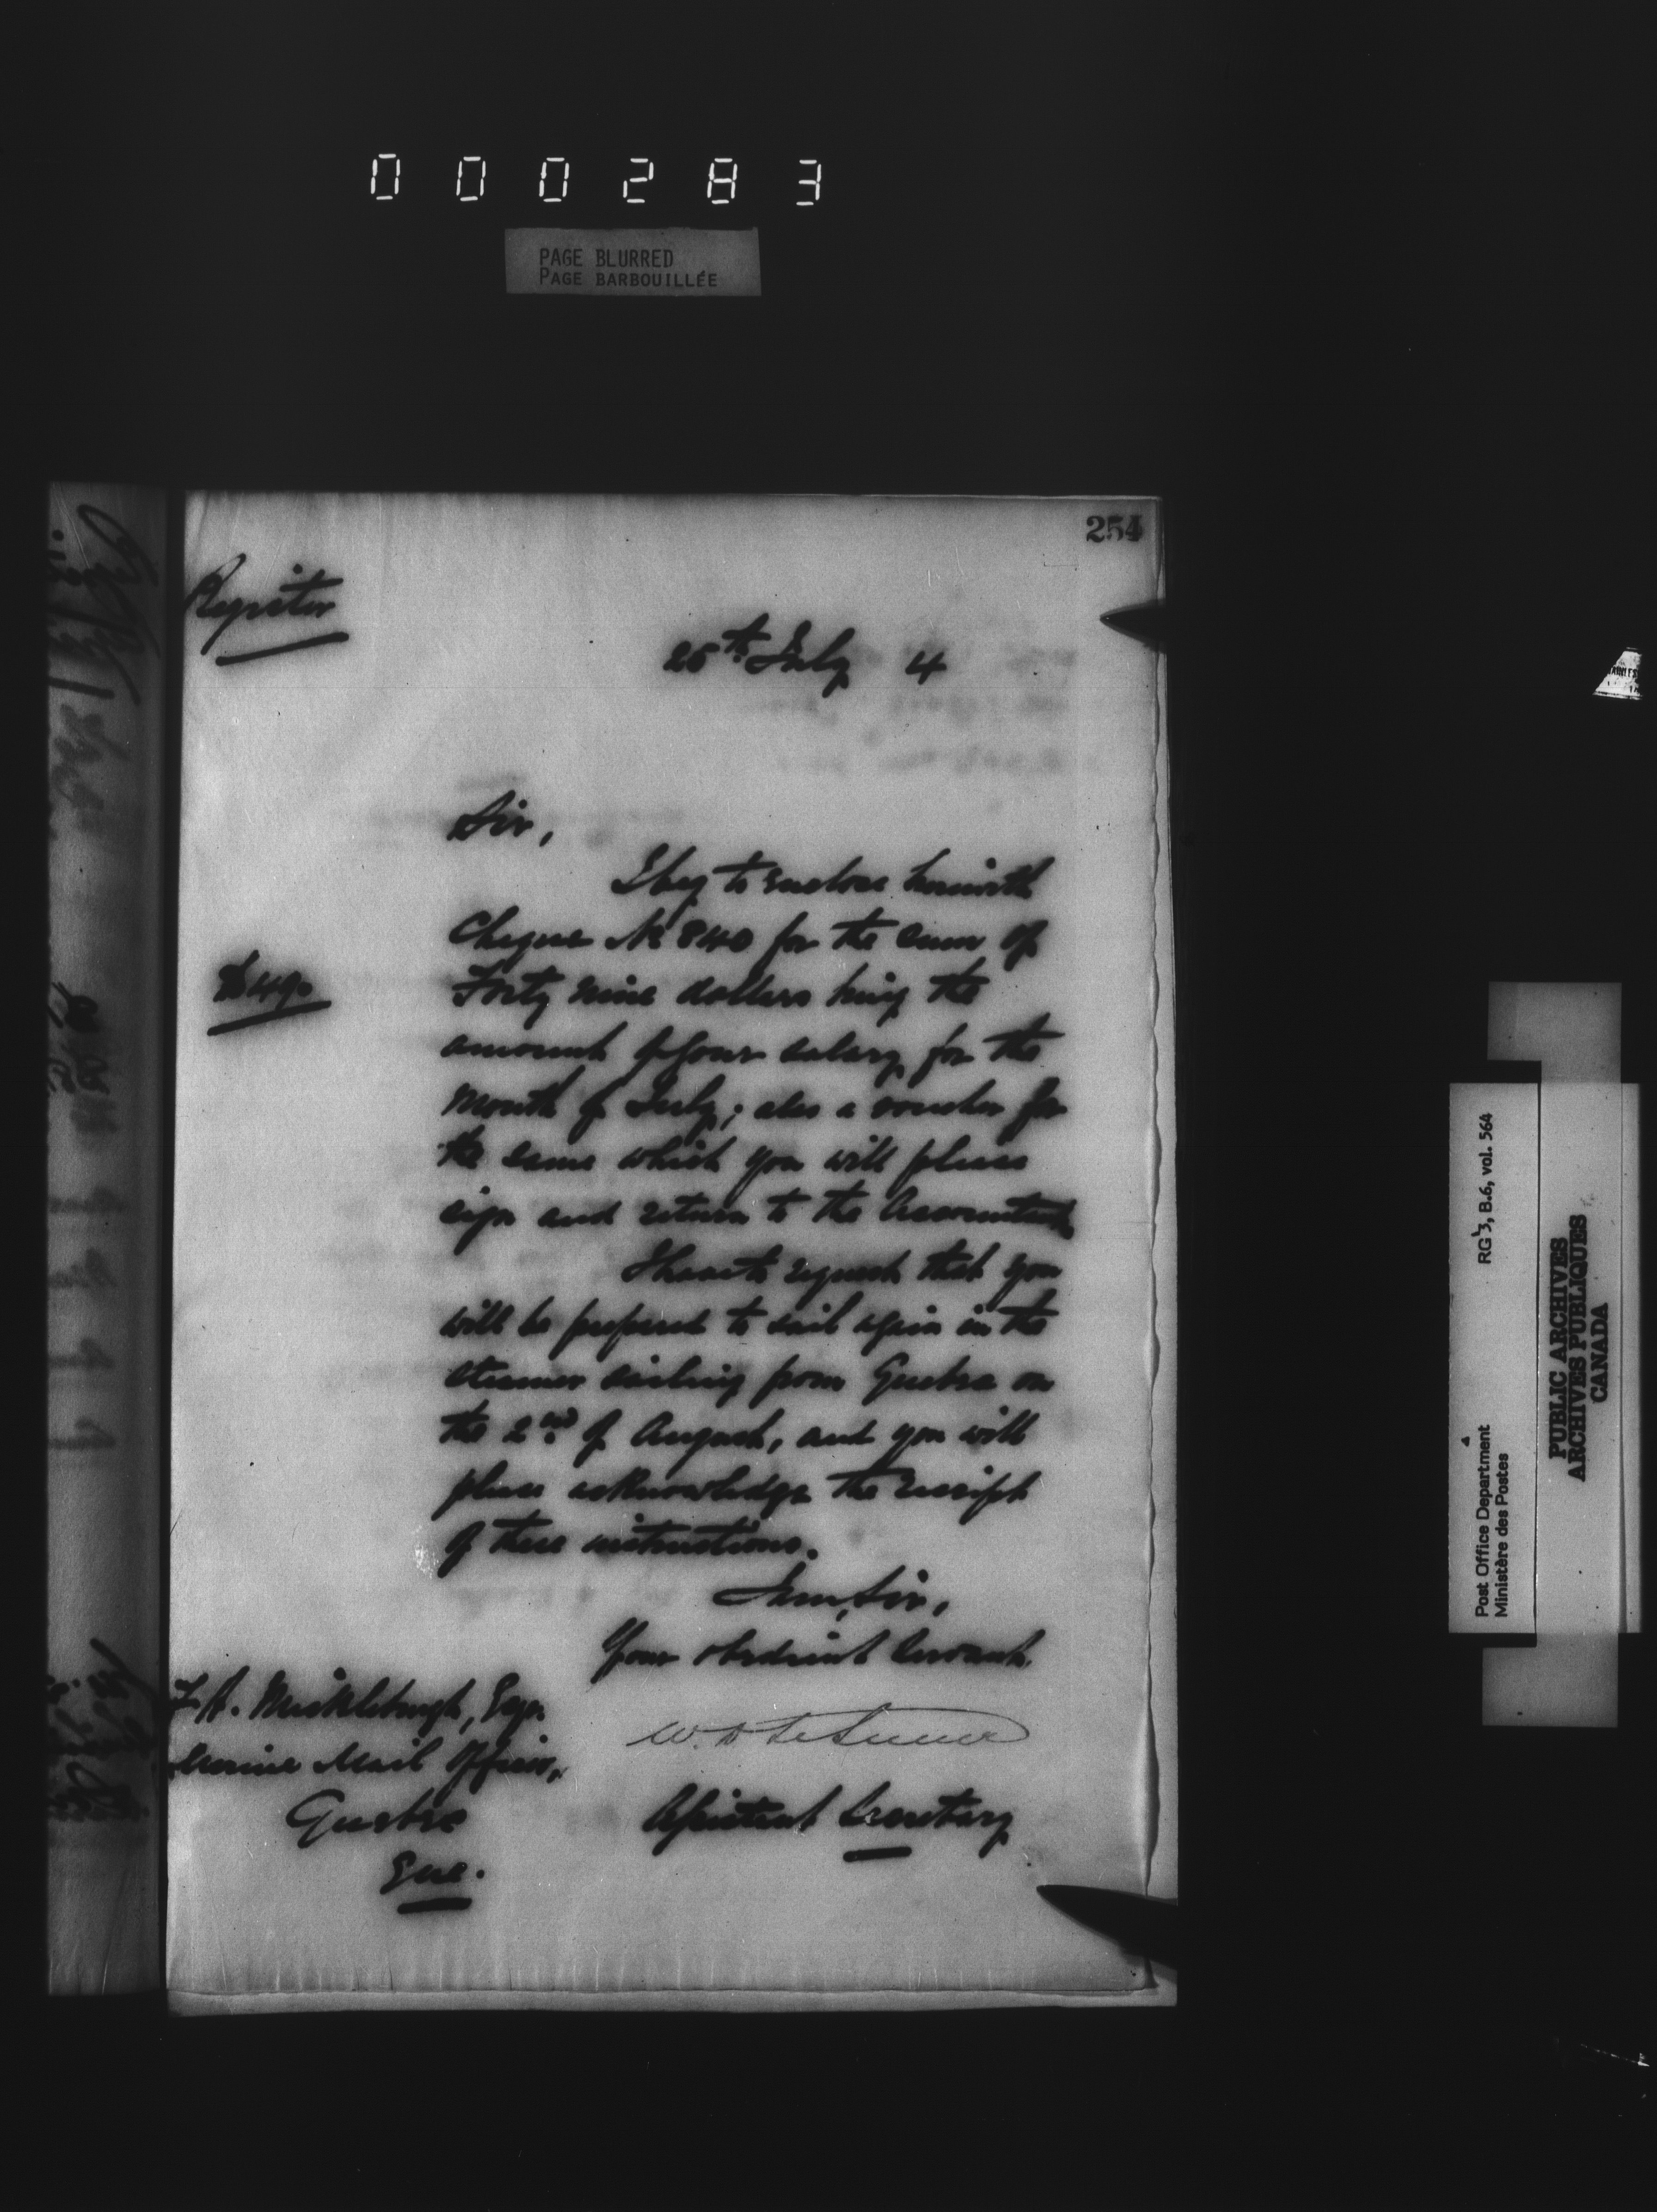 000283
PAGE BLURRED
PAGE BARBOUILLÉE
254
Register
25th July 4
Sir,
I beg to enclose herewith
Cheque No 840 for the sum of
$49.
Forty nine dollars being the
amount of your salary for the
month of July; also a voucher for
the same which you will please
sign and return to the Accountant.
I have to request that you
will be prepared to sail again in the
steamer sailing from Quebec on
the 2nd of August, and you will
please acknowledge the receipt
of these instructions.
I am, Sir,
Your obedient Servant.
Micklebburgh, Esqr.
Marine Mail Officer,
Quebec
Que.
W. D. LeSueur
Assistant Secretary
Post Office Department
Ministère des Postes
RG 3, B.6, vol. 564
PUBLIC ARCHIVES
ARCHIVES PUBLIQUES
CANADA